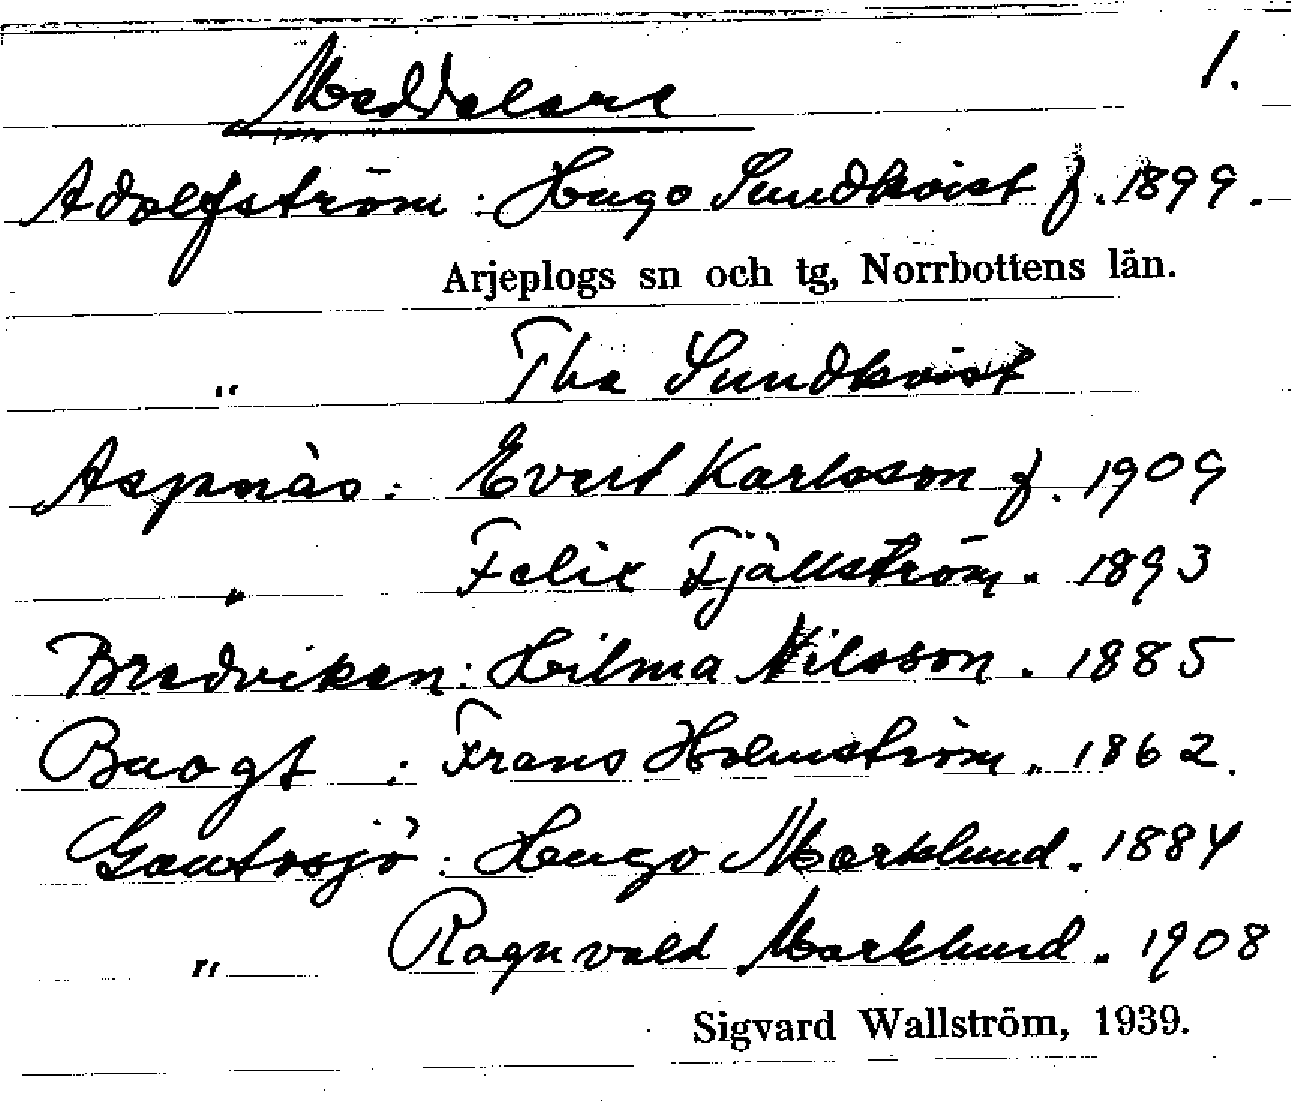 1.
Meddelare
Adolfström : Hugo Sundkvist f. 1899.
Arjeplogs sn och tg, Norrbottens län.
" Thea Sundkvist
Aspnäs : Evert Karlsson f. 1909
" Felix Fjällström " 1893
Bredviken : Hilma Nilsson . 1885
: Frans Holmström " 1862.
Gautosjö : Hugo Marklund " 1884
" Ragnvald Marklund " 1908
Sigvard Wallström, 1939.